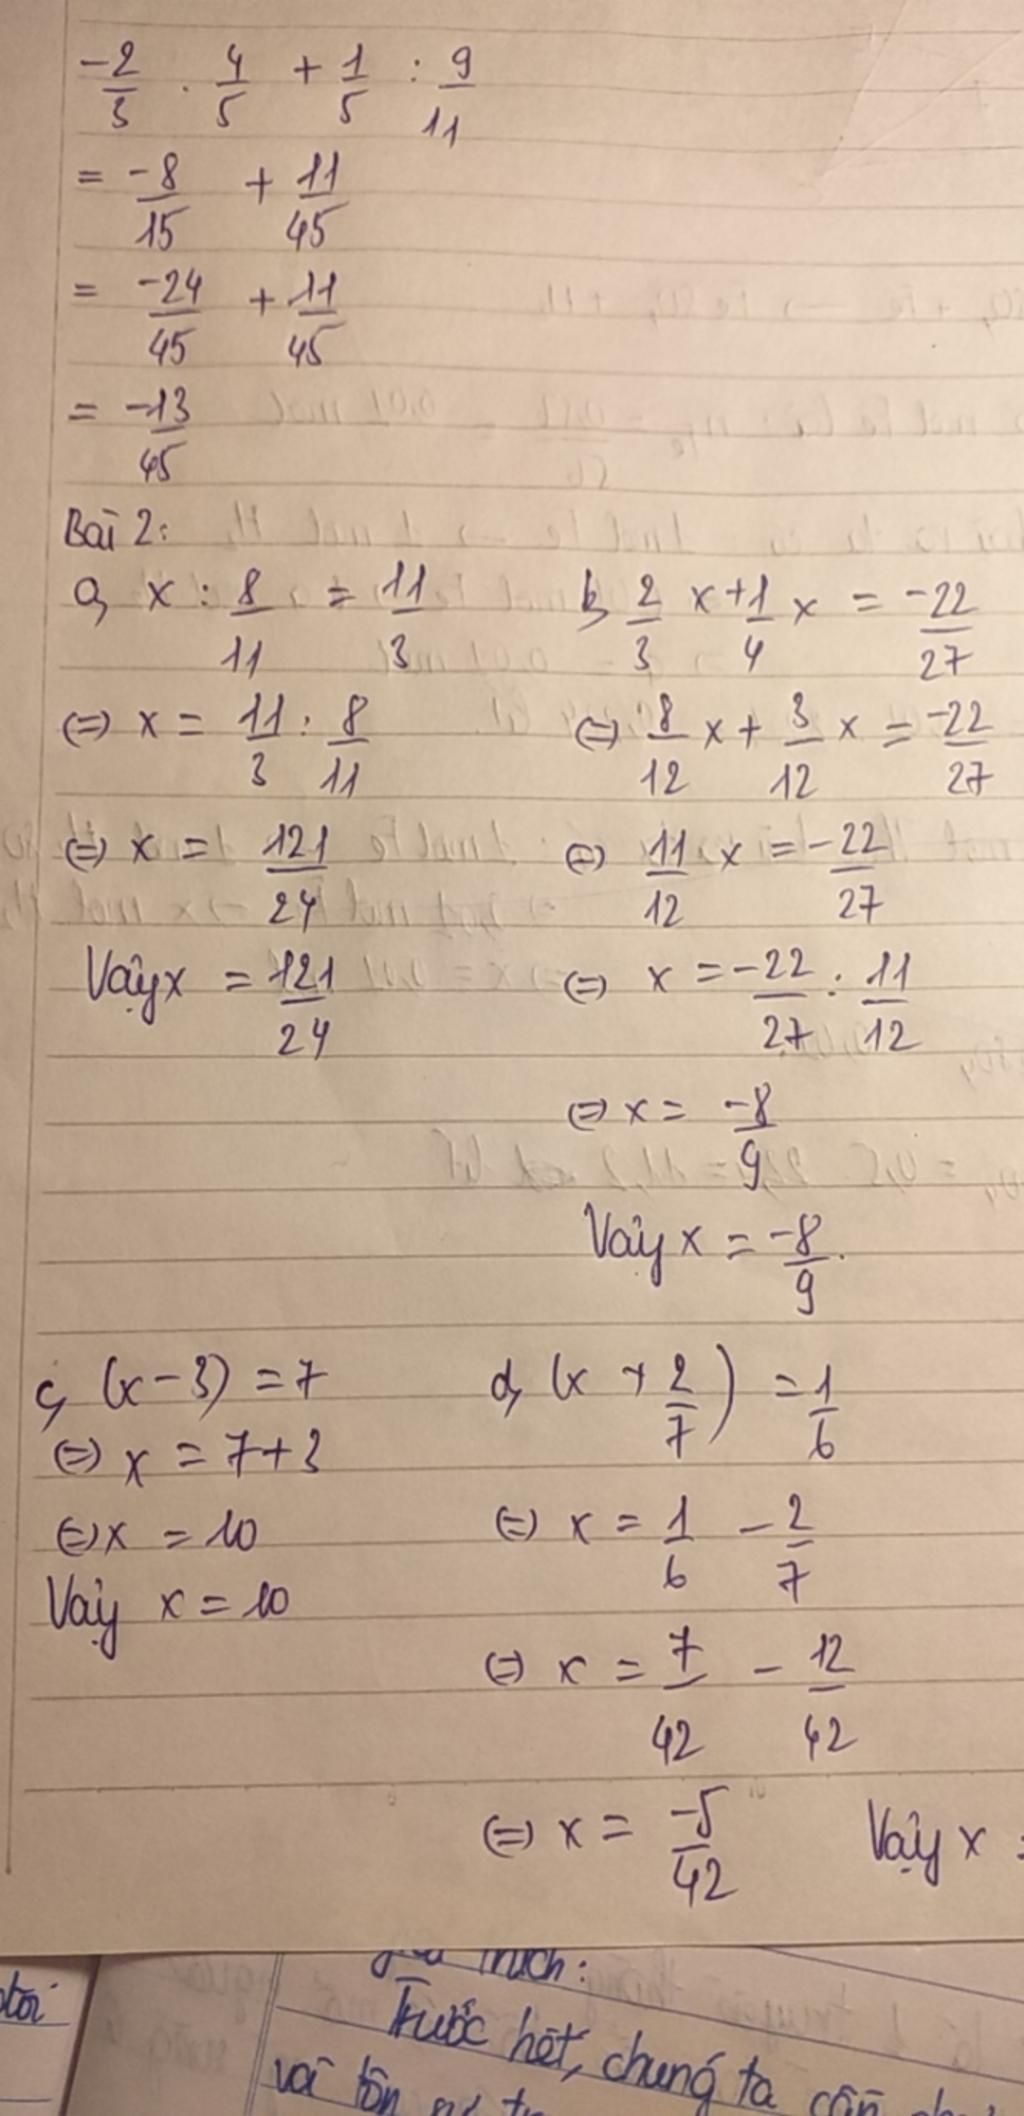 -2/3 . 4/5 + 1/5 : 9/11
= -8/15 + 11/45
= -24/45 + 11/45
= -13/45
Bài 2:
a, x : 8/11 = 11/3
⇔ x = 11/3 : 8/11
⇔ x = 121/24
Vậy x = 121/24
b, 2/3 x + 1/4 x = -22/27
⇔ 8/12 x + 3/12 x = -22/27
⇔ 11/12 x = -22/27
⇔ x = -22/27 : 11/12
⇔ x = -8/9
Vậy x = -8/9.
c, (x - 3) = 7
⇔ x = 7 + 3
⇔ x = 10
Vậy x = 10
d, (x + 2/7) = 1/6
⇔ x = 1/6 - 2/7
⇔ x = 7/42 - 12/42
⇔ x = -5/42 Vậy x =
thích:
Trước hết, chúng ta cần
và tôn sư